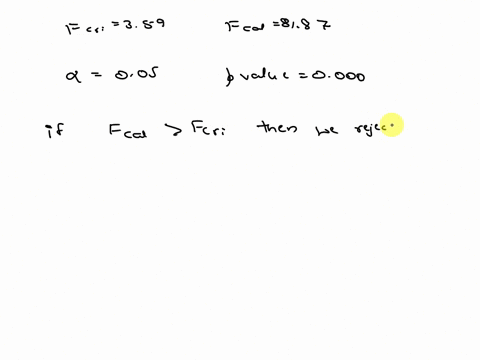 Fcri = 3.59 Fcal = 81.87
α = 0.05 p value = 0.000
if Fcal > Fcri then we rejec